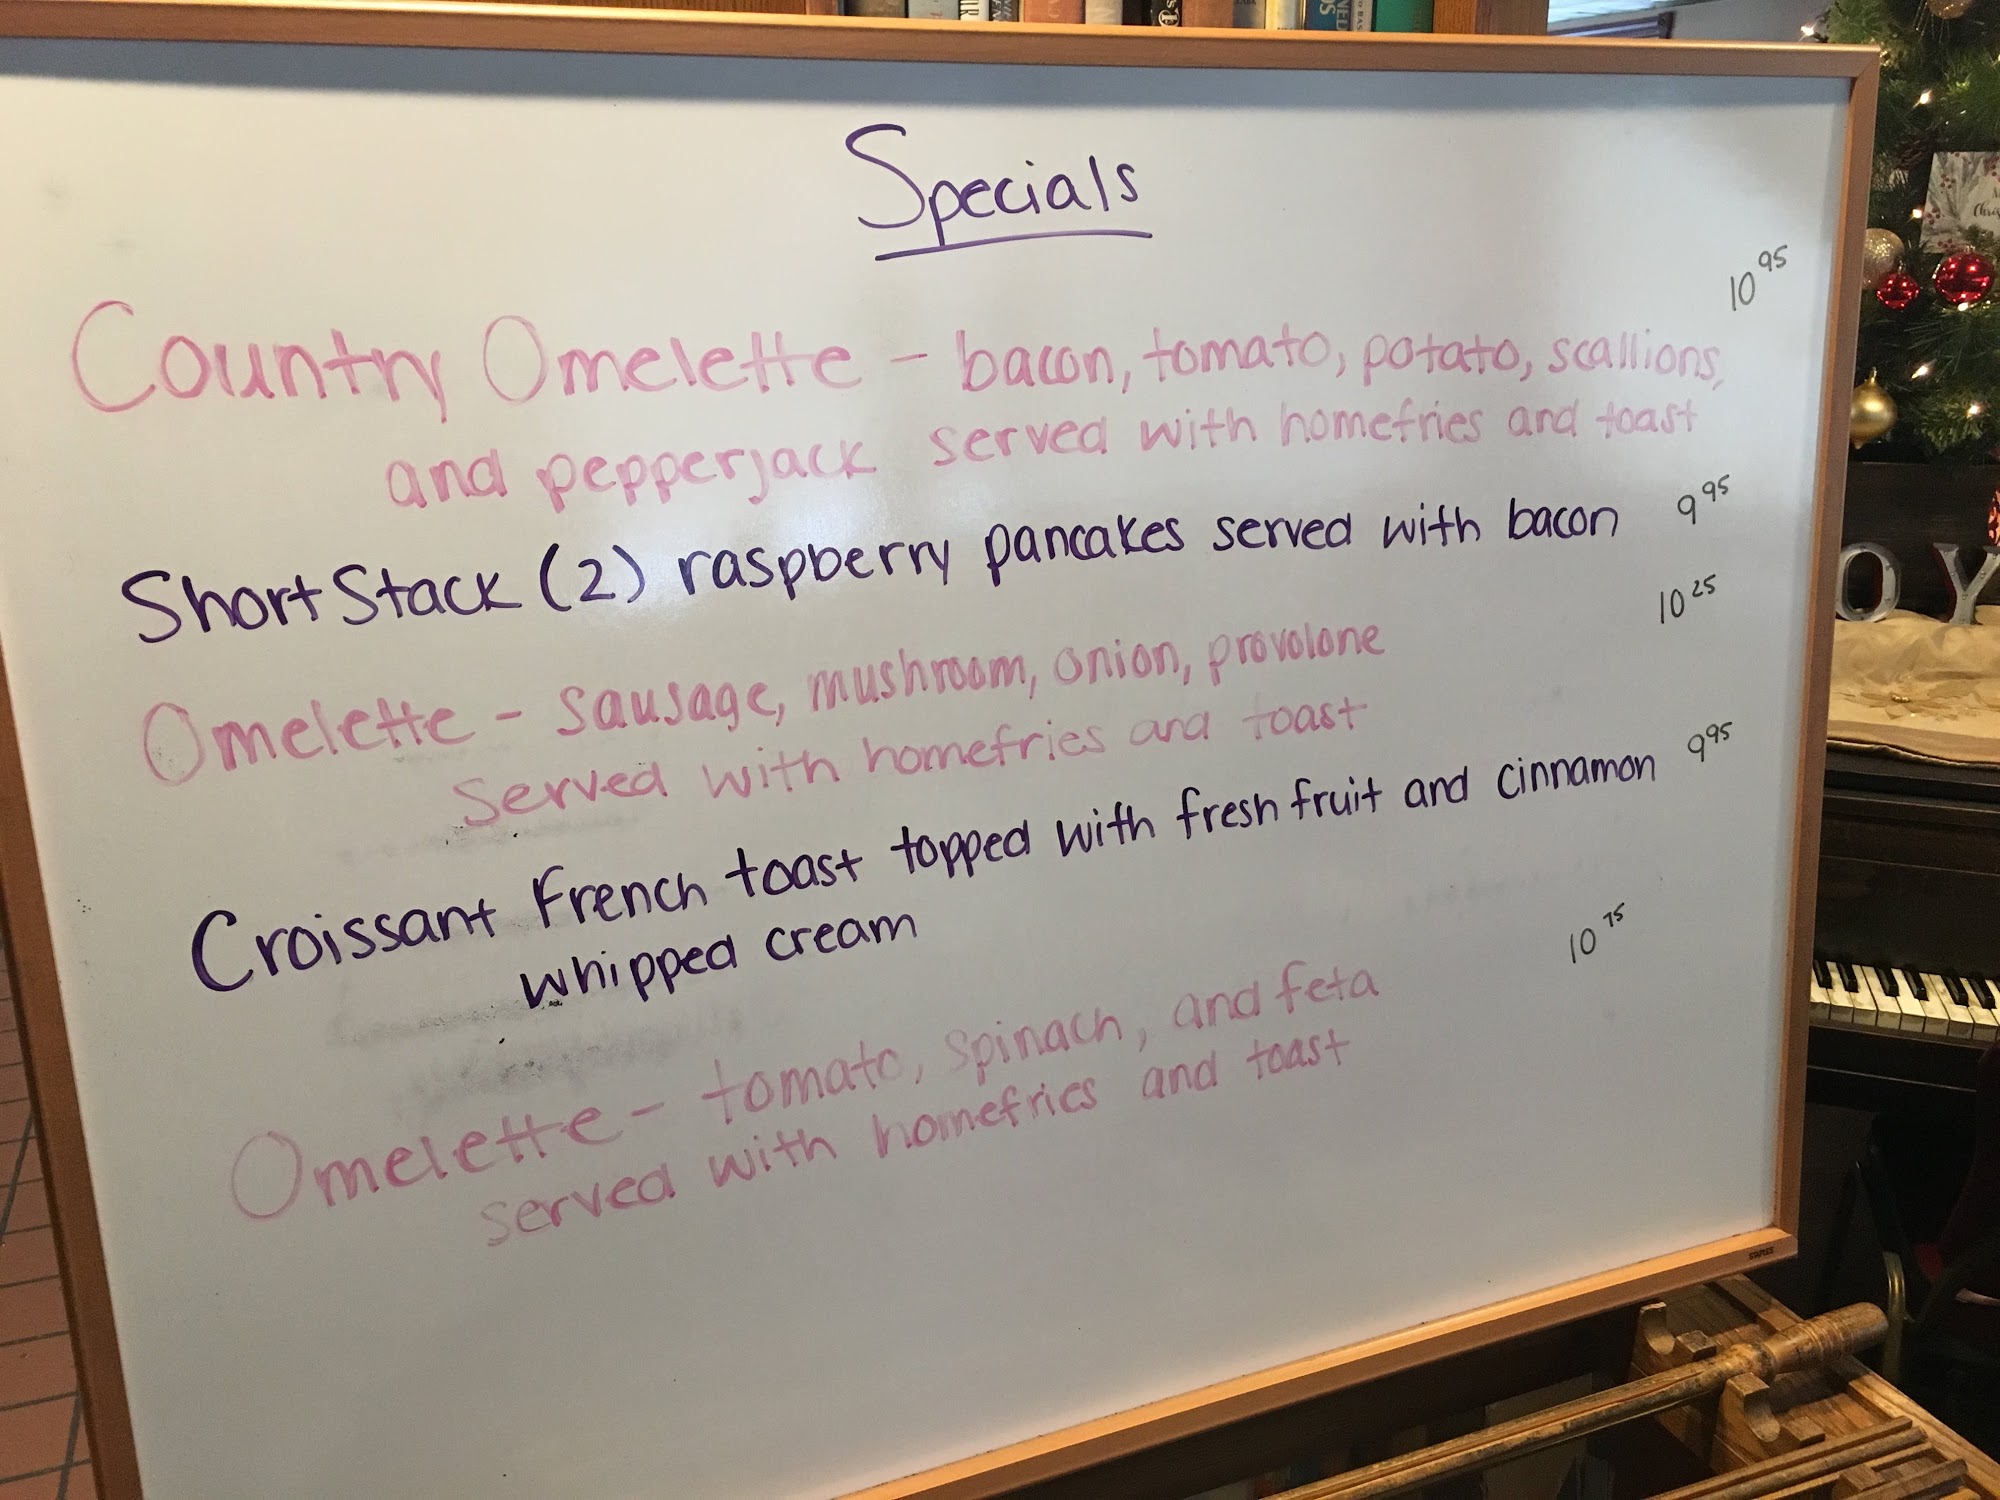 Specials
Country Omelette - bacon, tomato, potato, scallions, 10 95
and pepperjack served with homefries and toast
Short Stack (2) raspberry pancakes served with bacon 9 95
Omelette - sausage, mushroom, onion, provolone 10 25
served with homefries and toast
Croissant French toast topped with fresh fruit and cinnamon 9 95
whipped cream
Omelette - tomato, spinach, and feta 10 75
served with homefries and toast
STAPLES
OY